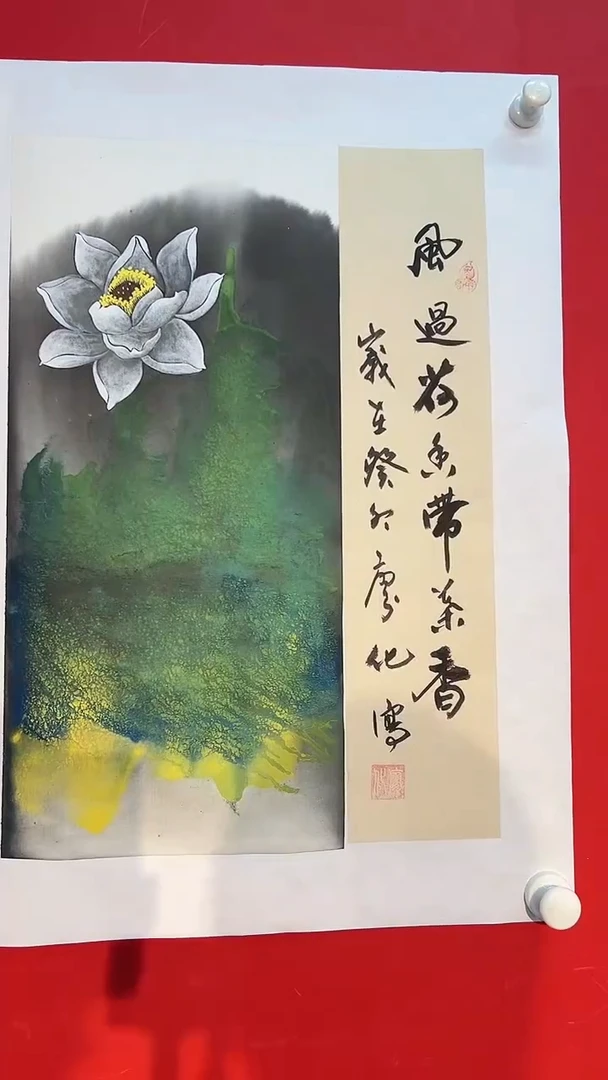 風過荷香帶茶香
歲在癸卯廖化寫